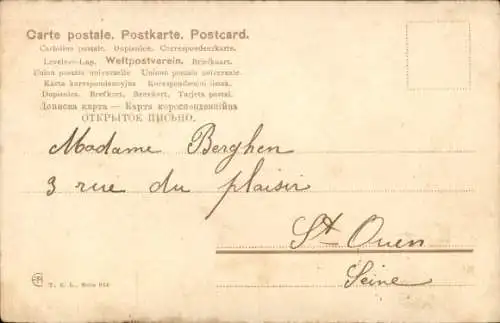 Carte postale. Postkarte. Postcard.
Cartolina postale. Dopisnice. Correspondenzkarte.
Levelező-Lap. Weltpostverein. Briefkaart.
Union postale universelle Unione postale universale.
Karta korespondencyjna Korespondenční lístek.
Dopisnica. Brefkort. Brevkort. Tarjeta postal.
Дописна карта — Карта кореспонденційна
ОТКРЫТОЕ ПИСЬМО.
Madame Berghen
3 rue du plaisir
St Ouen
Seine
T. S. L., Serie